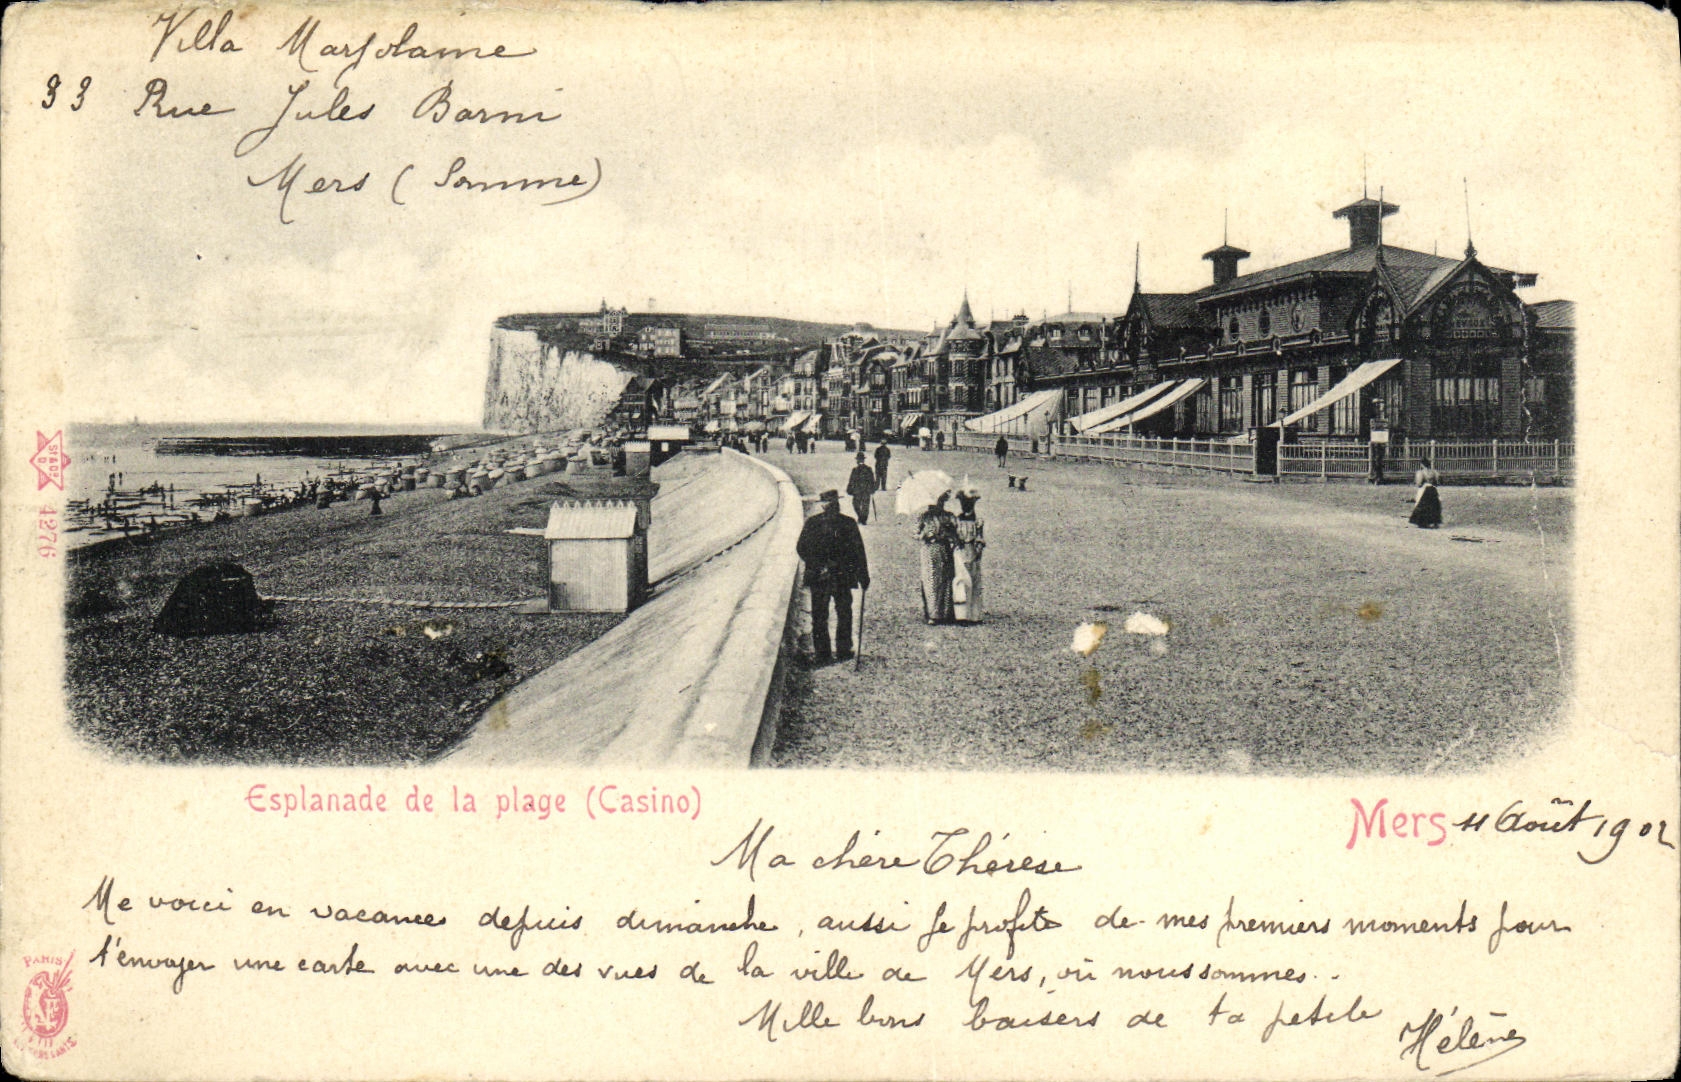 Villa Marjolaine
33 Rue Jules Barni
Mers (Somme)
4276
Esplanade de la plage (Casino)
Mers 11 Août 1902
Ma chère Thérèse
Me voici en vacances depuis dimanche, aussi je profite de mes premiers moments pour
t'envoyer une carte avec une des vues de la ville de Mers, où nous sommes..
Mille bons baisers de ta petite
Hélène
PARIS